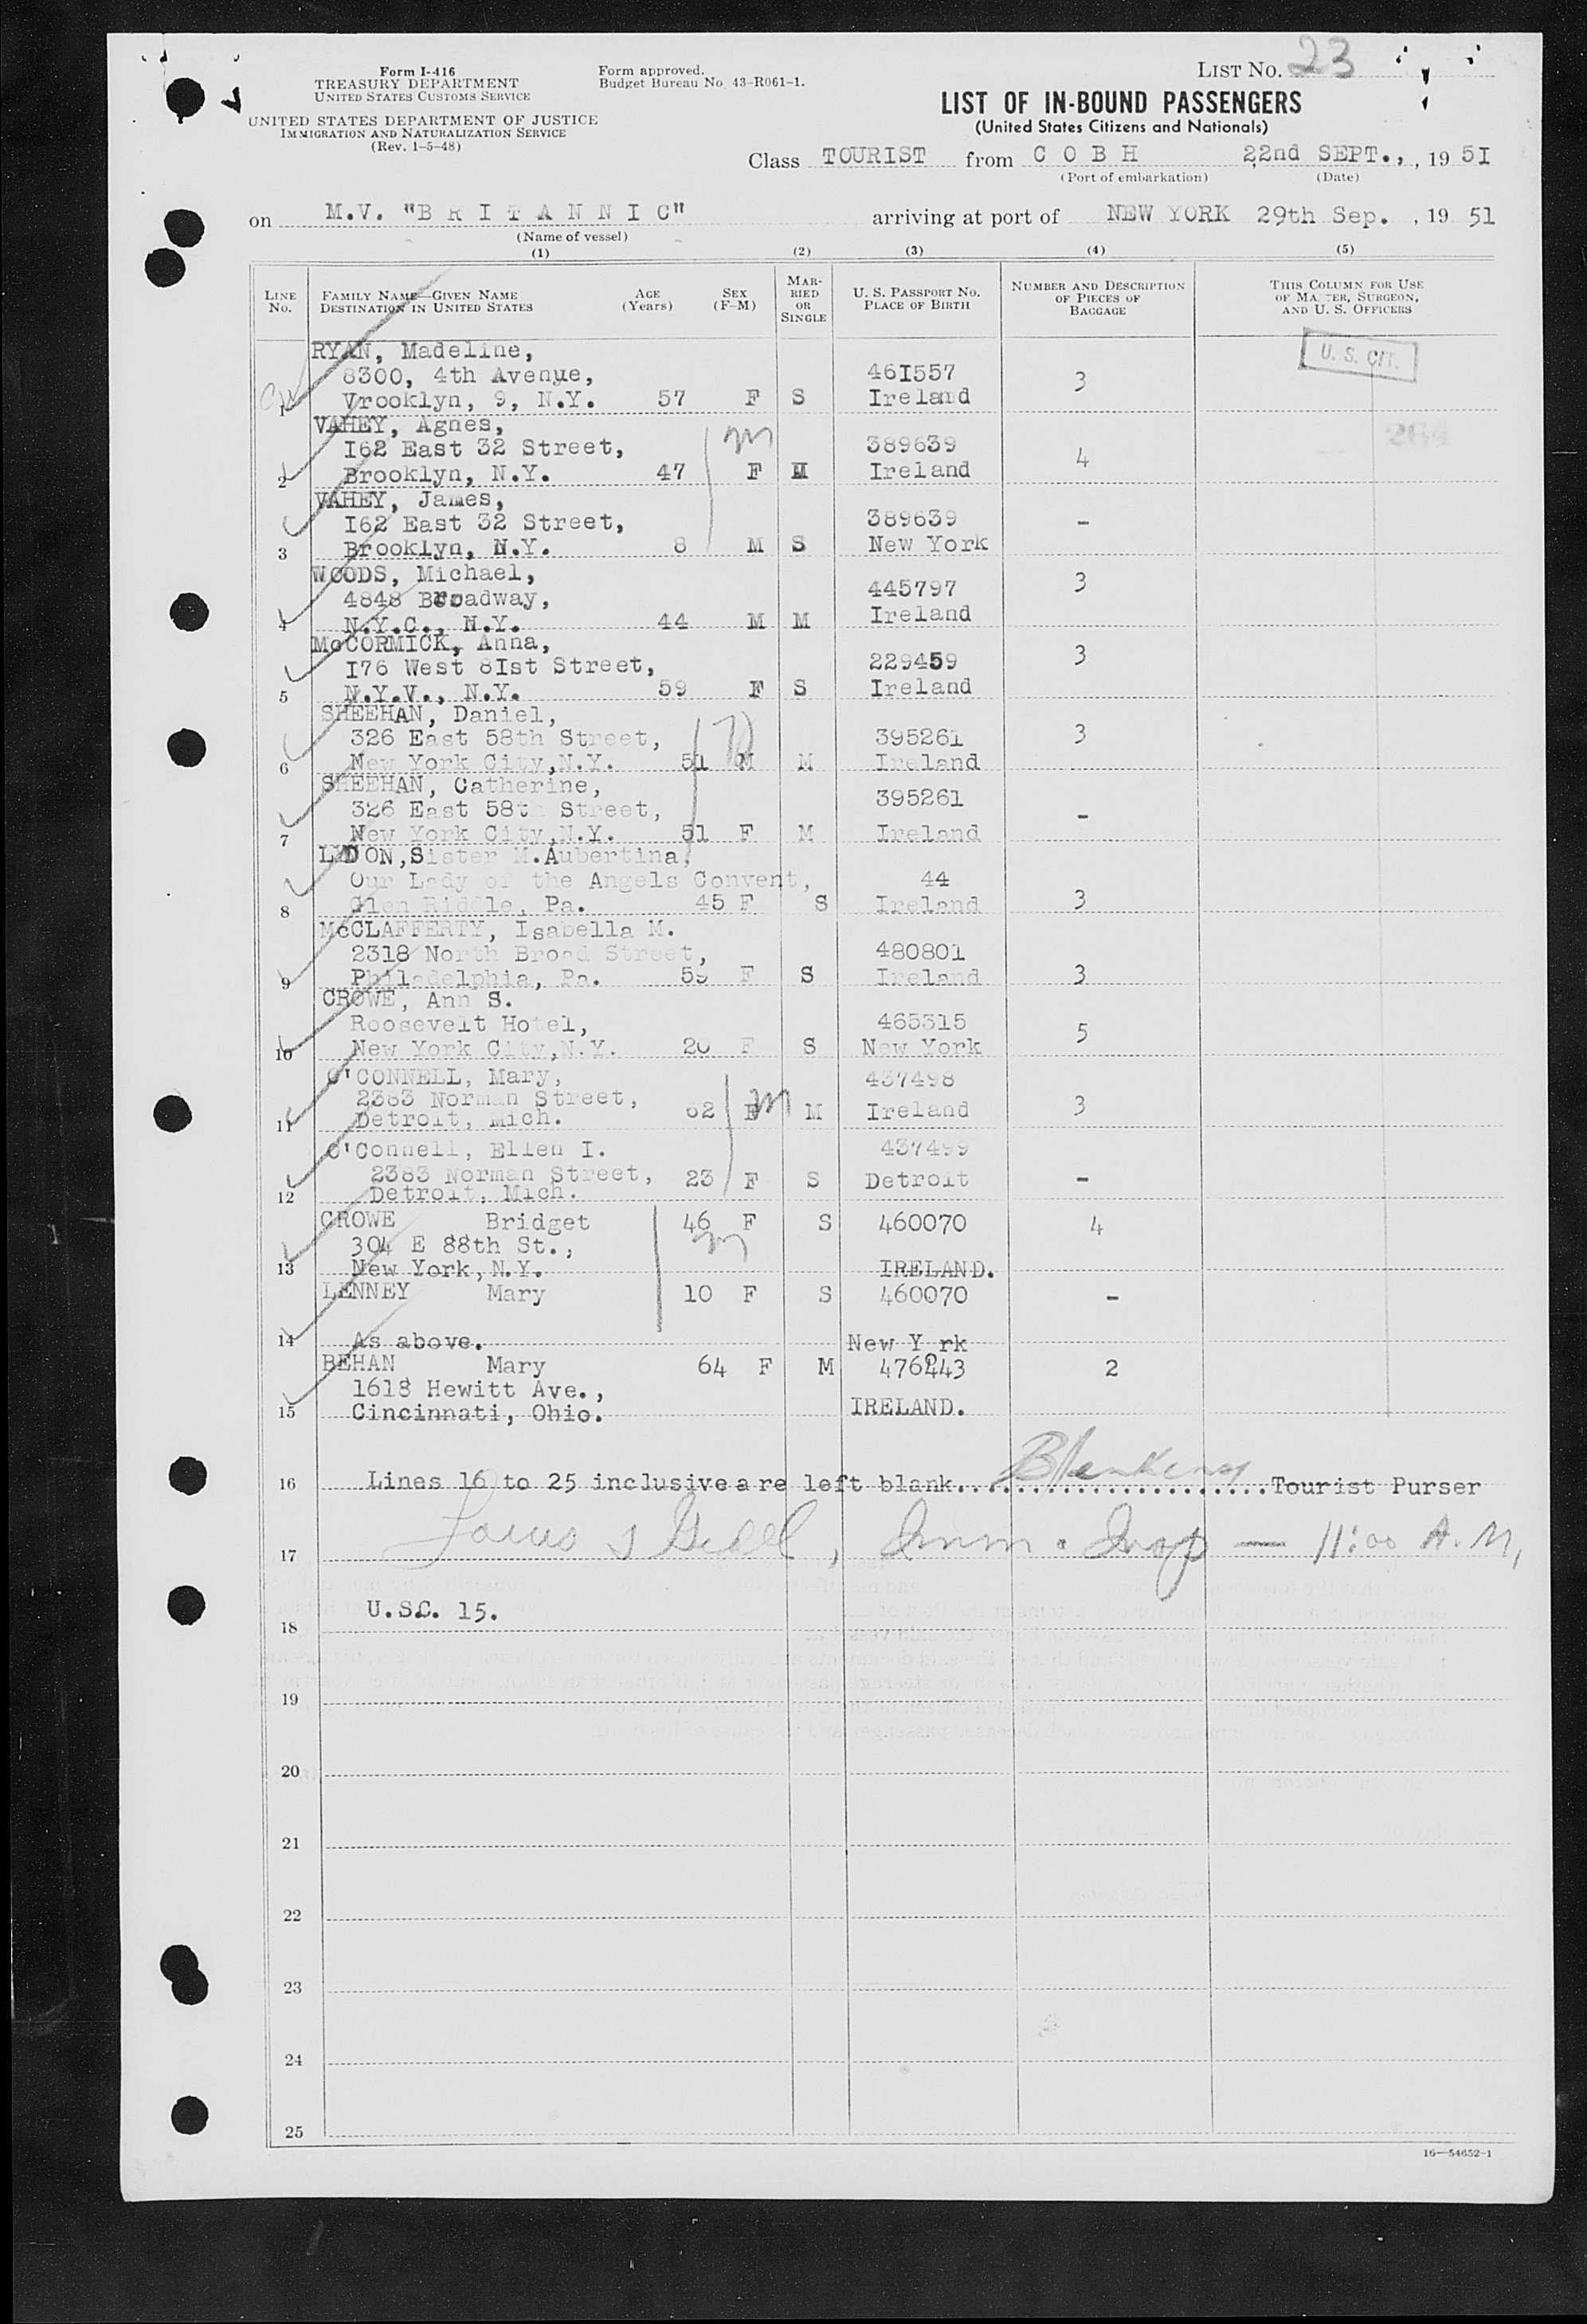 Form I-416
TREASURY DEPARTMENT
UNITED STATES CUSTOMS SERVICE
UNITED STATES DEPARTMENT OF JUSTICE
IMMIGRATION AND NATURALIZATION SERVICE
(Rev. 1-5-48)
Form approved.
Budget Bureau No. 43-R061-1.
LIST NO. 23
LIST OF IN-BOUND PASSENGERS
(United States Citizens and Nationals)
Class TOURIST from C O B H 22nd SEPT., , 19 5I
(Port of embarkation) (Date)
on M.V. "B R I T A N N I C" arriving at port of NEW YORK 29th Sep. , 19 51
(Name of vessel)
(1) (2) (3) (4) (5)
LINE NO. FAMILY NAME—GIVEN NAME DESTINATION IN UNITED STATES AGE (Years) SEX (F-M) MARRIED OR SINGLE U. S. PASSPORT NO. PLACE OF BIRTH NUMBER AND DESCRIPTION OF PIECES OF BAGGAGE THIS COLUMN FOR USE OF MASTER, SURGEON, AND U. S. OFFICERS
RYAN, Madeline,
8300, 4th Avenue, 46I557 3 U. S. CIT.
1 Vrooklyn, 9, N.Y. 57 F S Ireland
VAHEY, Agnes,
I62 East 32 Street, 389639 4
2 Brooklyn, N.Y. 47 F M Ireland
VAHEY, James,
I62 East 32 Street, 389639 -
3 Brooklyn, N.Y. 8 M S New York
WOODS, Michael, 3
4848 Broadway, 445797
4 N.Y.C., N.Y. 44 M M Ireland
McCORMICK, Anna,
I76 West 8Ist Street, 229459 3
5 N.Y.V., N.Y. 59 F S Ireland
SHEEHAN, Daniel,
326 East 58th Street, 395261 3
6 New York City,N.Y. 51 M M Ireland
SHEEHAN, Catherine, 395261
326 East 58th Street, -
7 New York City,N.Y. 51 F M Ireland
LYDON,Sister M.Aubertina,
Our Lady of the Angels Convent, 44
8 Glen Riddle, Pa. 45 F S Ireland 3
McCLAFFERTY, Isabella M.
2318 North Broad Street, 480801
9 Philadelphia, Pa. 59 F S Ireland 3
CROWE, Ann S.
Roosevelt Hotel, 465315 5
10 New York City,N.Y. 20 F S New York
O'CONNELL, Mary, 437498
2383 Norman Street, 62 F M Ireland 3
11 Detroit, Mich.
O'Connell, Ellen I. 437499
2383 Norman Street, 23 F S Detroit -
12 Detroit, Mich.
CROWE Bridget 46 F S 460070 4
304 E 88th St.,
13 New York,N.Y. IRELAND.
LENNEY Mary 10 F S 460070 -
14 As above. New Y rk
BEHAN Mary 64 F M 476243 2
1618 Hewitt Ave.,
15 Cincinnati, Ohio. IRELAND.
16 Lines 16 to 25 inclusive are left blank. Tourist Purser
17 Imm. Insp — 11:00 A.M,
18 U.S.C. 15.
19
20
21
22
23
24
25
16—54652-1